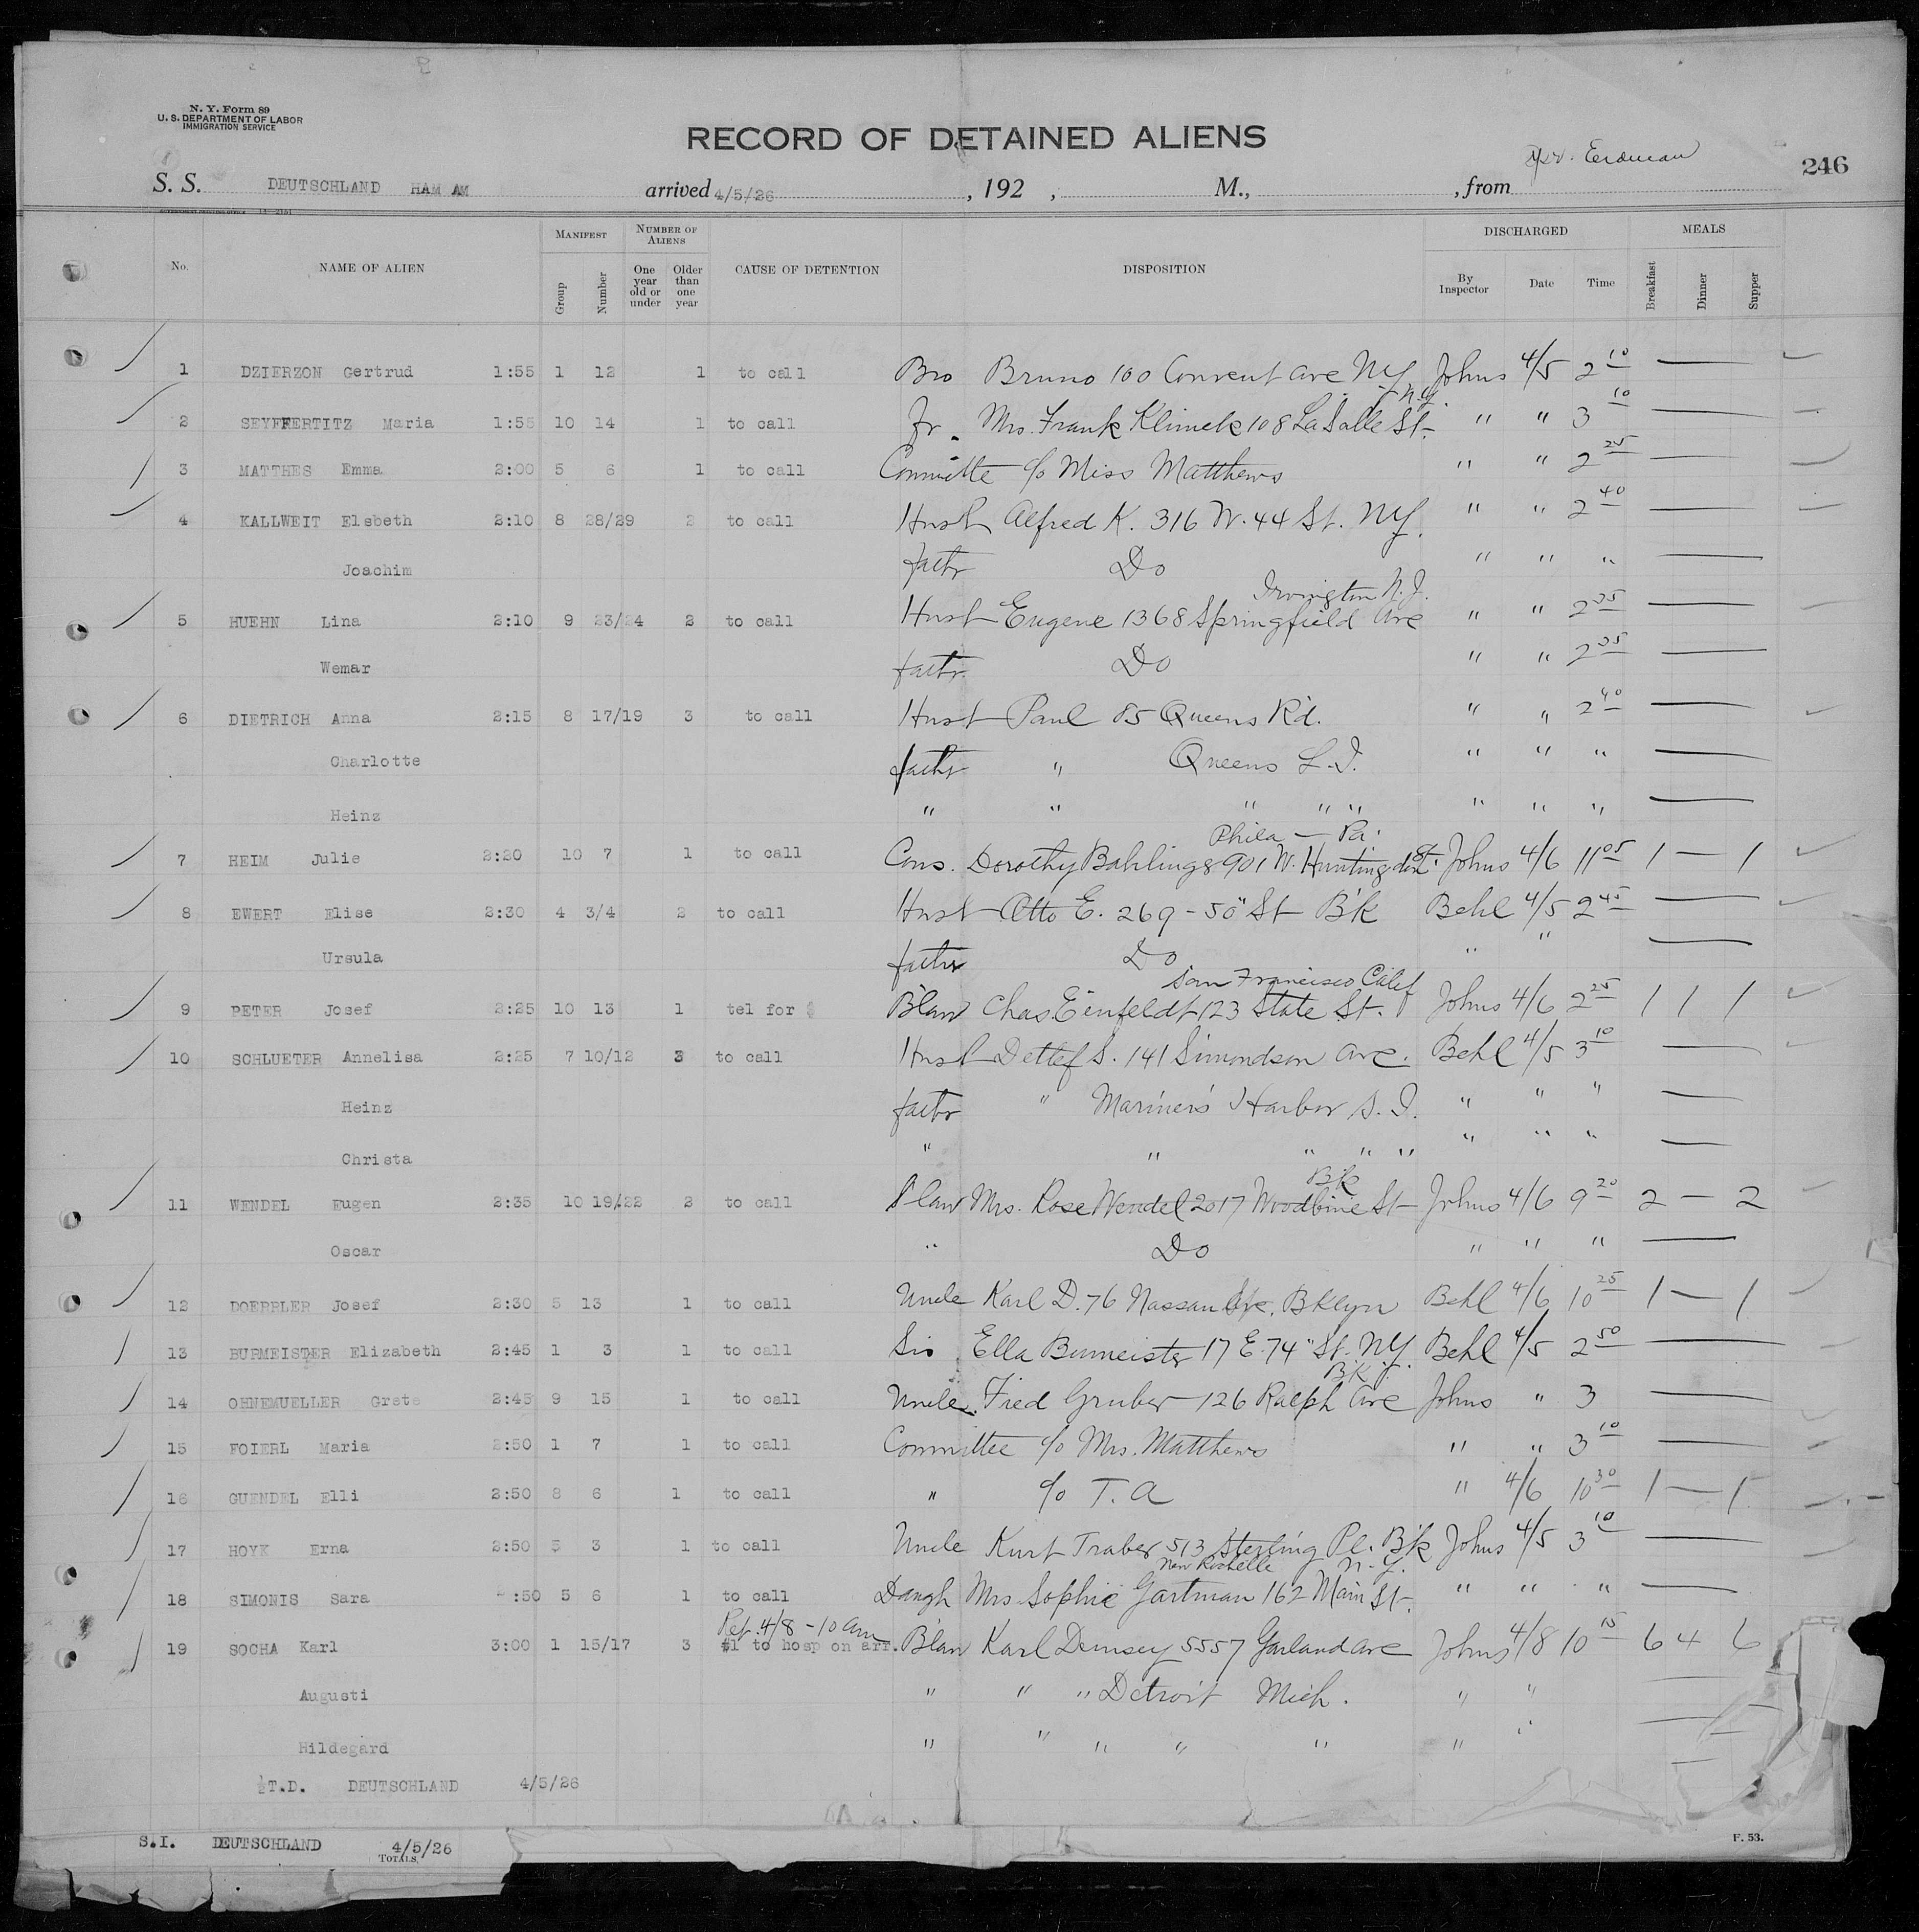 N. Y. Form 89
U. S. DEPARTMENT OF LABOR
IMMIGRATION SERVICE
RECORD OF DETAINED ALIENS
Erdman
246
S. S. DEUTSCHLAND HAM AM arrived 4/5/26, 192 , M., , from
No. NAME OF ALIEN MANIFEST Group Number NUMBER OF ALIENS One year old or under Older than one year CAUSE OF DETENTION DISPOSITION DISCHARGED By Inspector Date Time MEALS Breakfast Dinner Supper
1 DZIERZON Gertrud 1:55 1 12 1 to call Bro Bruno 100 Convent Ave NY Johns 4/5 2 10 —
N.Y.
2 SEYFFERTITZ Maria 1:55 10 14 1 to call Fr. Mrs. Frank Klimek 108 LaSalle St. " " 3 10 —
3 MATTHES Emma 2:00 5 6 1 to call Committe c/o Miss Matthews " " 2 25 —
4 KALLWEIT Elsbeth 2:10 8 28/29 2 to call Husb Alfred K. 316 W. 44 St. NY. " " 2 40 —
Joachim fathr Do " " " —
Irvington N.J.
5 HUEHN Lina 2:10 9 23/24 2 to call Husb Eugene 1368 Springfield Ave " " 2 35 —
Wemar fathr. Do " " 2 35 —
6 DIETRICH Anna 2:15 8 17/19 3 to call Husb Paul 85 Queens Rd. " " 2 40 —
Charlotte fathr " Queens L.I. " " " —
Heinz " " " " " " " " —
Phila — Pa.
7 HEIM Julie 2:20 10 7 1 to call Cons. Dorothy Bahlings 901 W. Huntingdon St. Johns 4/6 11 05 1 — 1
8 EWERT Elise 2:30 4 3/4 2 to call Husb Otto E. 269 - 50" St B'k Behl 4/5 2 45 —
Ursula fathr Do " " —
San Francisco Calif
9 PETER Josef 2:25 10 13 1 tel for $ B'law Chas Einfeldt 123 State St. Johns 4/6 2 25 1 1 1
10 SCHLUETER Annelisa 2:25 7 10/12 3 to call Husb Detlef S. 141 Simondson Ave. Behl 4/5 3 10 —
Heinz fathr " Mariners Harbor S.I. " " " —
Christa " " " " " " " " —
B'k
11 WENDEL Eugen 2:35 10 19/22 2 to call S'law Mrs. Rose Wendel 2017 Woodbine St Johns 4/6 9 20 2 — 2
Oscar " Do " " " —
12 DOERBLER Josef 2:30 5 13 1 to call Uncle Karl D. 76 Nassau Ave. Bklyn Behl 4/6 10 25 1 — 1
13 BURMEISTER Elizabeth 2:45 1 3 1 to call Sis Ella Burmeister 17 E. 74" St. NY. Behl 4/5 2 50 —
B'K
14 OHNEMUELLER Grete 2:45 9 15 1 to call Uncle. Fred Gruber 126 Ralph Ave Johns " 3 —
15 FOIERL Maria 2:50 1 7 1 to call Committee c/o Mrs. Matthews " " 3 10 —
16 GUENDEL Elli 2:50 8 6 1 to call " c/o T. A " 4/6 10 30 1 — 1
17 HOYK Erna 2:50 3 3 1 to call Uncle Kurt Traber 513 Sterling Pl. B'k Johns 4/5 3 10 —
New Rochelle N.Y.
18 SIMONIS Sara :50 5 6 1 to call Daugh Mrs Sophie Gartman 162 Main St. " " " —
Ref. 4/8 - 10 am
19 SOCHA Karl 3:00 1 15/17 3 #1 to hosp on arr. B'law Karl Demsey 5557 Garland Ave Johns 4/8 10 15 6 4 6
Augusti " " " Detroit Mich. " " —
Hildegard " " " " " " " —
T.D. DEUTSCHLAND 4/5/26
S.I. DEUTSCHLAND 4/5/26
TOTALS,
F. 53.